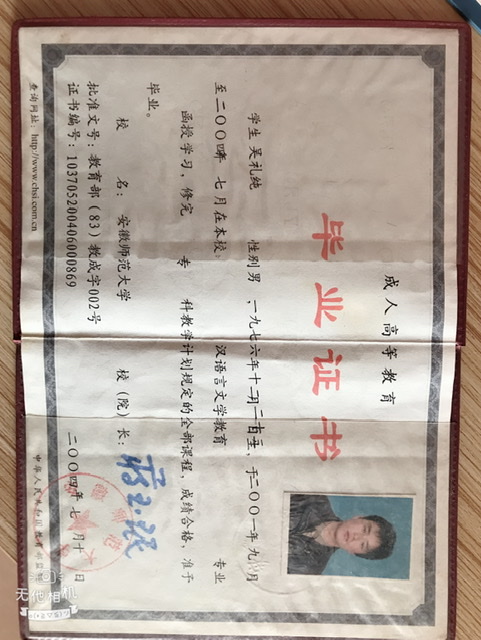 成人高等教育
毕业证书
学生 吴礼纯 性别 男，一九七六年十二月二十日生，于二〇〇一年九月
至二〇〇四年 七月在本校 汉语言文学教育 专业
函授学习，修完 专 科教学计划规定的全部课程，成绩合格，准予
毕业。
校 名：安徽师范大学 校（院）长：
批准文号：教育部（83）教成字002号
证书编号：103705200406000869 二〇〇四年 七月十 日
查询网址：http://www.chsi.com.cn
中华人民共和国教育部监制
无他相机